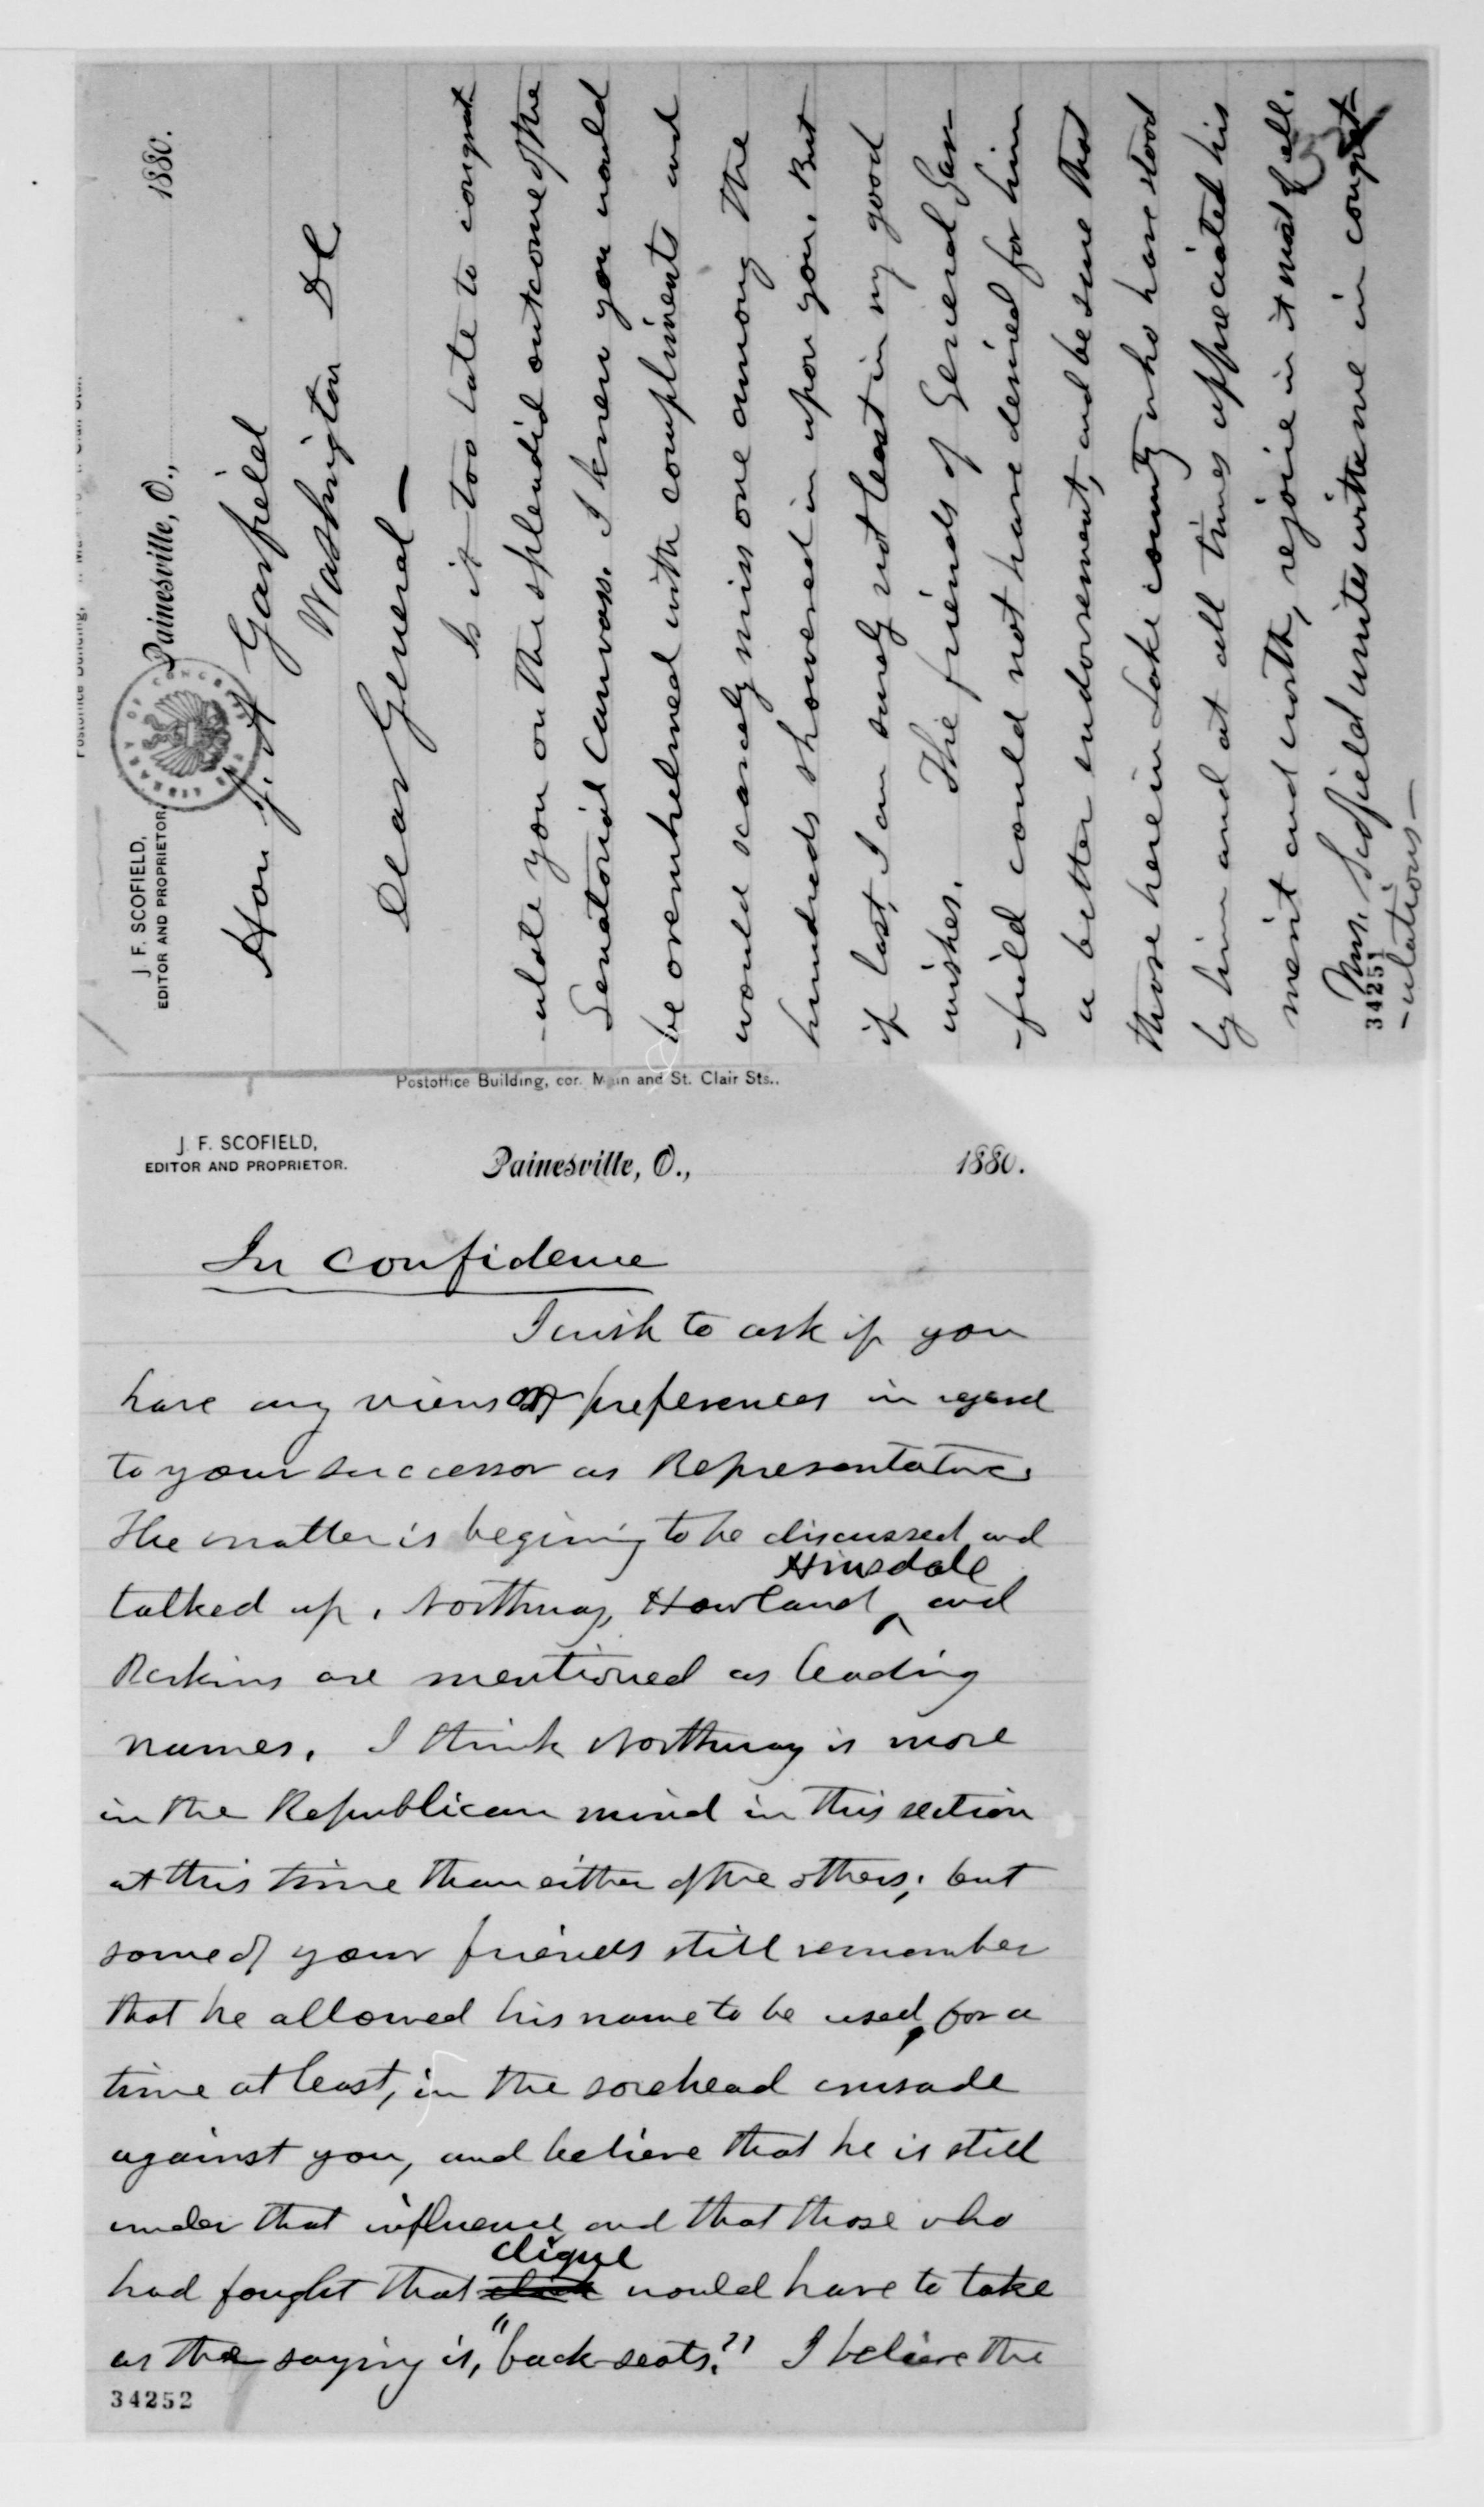 Postoffice Building, cor. Main and St. Clair Sts.
J. F. SCOFIELD,
EDITOR AND PROPRIETOR.
Painesville, O., 1880.
LIBRARY OF CONGRESS
Hon J. A Garfield
Washington DC
Dear General —
Is it too late to congrat
-ulate you on the splendid outcome of the
Senatorial Canvass. I knew you would
be overwhelmed with compliments and
would scarcely miss one among the
hundreds showered in upon you. But
if last, I am surely not least in my good
wishes. The friends of General Gar
-field could not have desired for him
a better endorsement, and be sure that
those here in Lake county who have stood
by him and at all times appreciated his
merit and worth, rejoice in it most of all.
Mrs. Scofield unites with me in congrat
-ulations —
34251
Postoffice Building, cor. Main and St. Clair Sts..
J. F. SCOFIELD,
EDITOR AND PROPRIETOR.
Painesville, O., 1880.
In confidence
I wish to ask if you
have any views or preferences in regard
to your successor as Representative.
The matter is begining to be discussed and
Hinsdale
talked up. Northway, Howland ^ and
Perkins are mentioned as leading
names. I think Northway is more
in the Republican mind in this section
at this time than either of the others; but
some of your friends still remember
that he allowed his name to be used, for a
time at least, in the sorehead crusade
against you, and believe that he is still
under that influence and that those who
clique
had fought that would have to take
as the saying is, "back seats." I believe the
34252